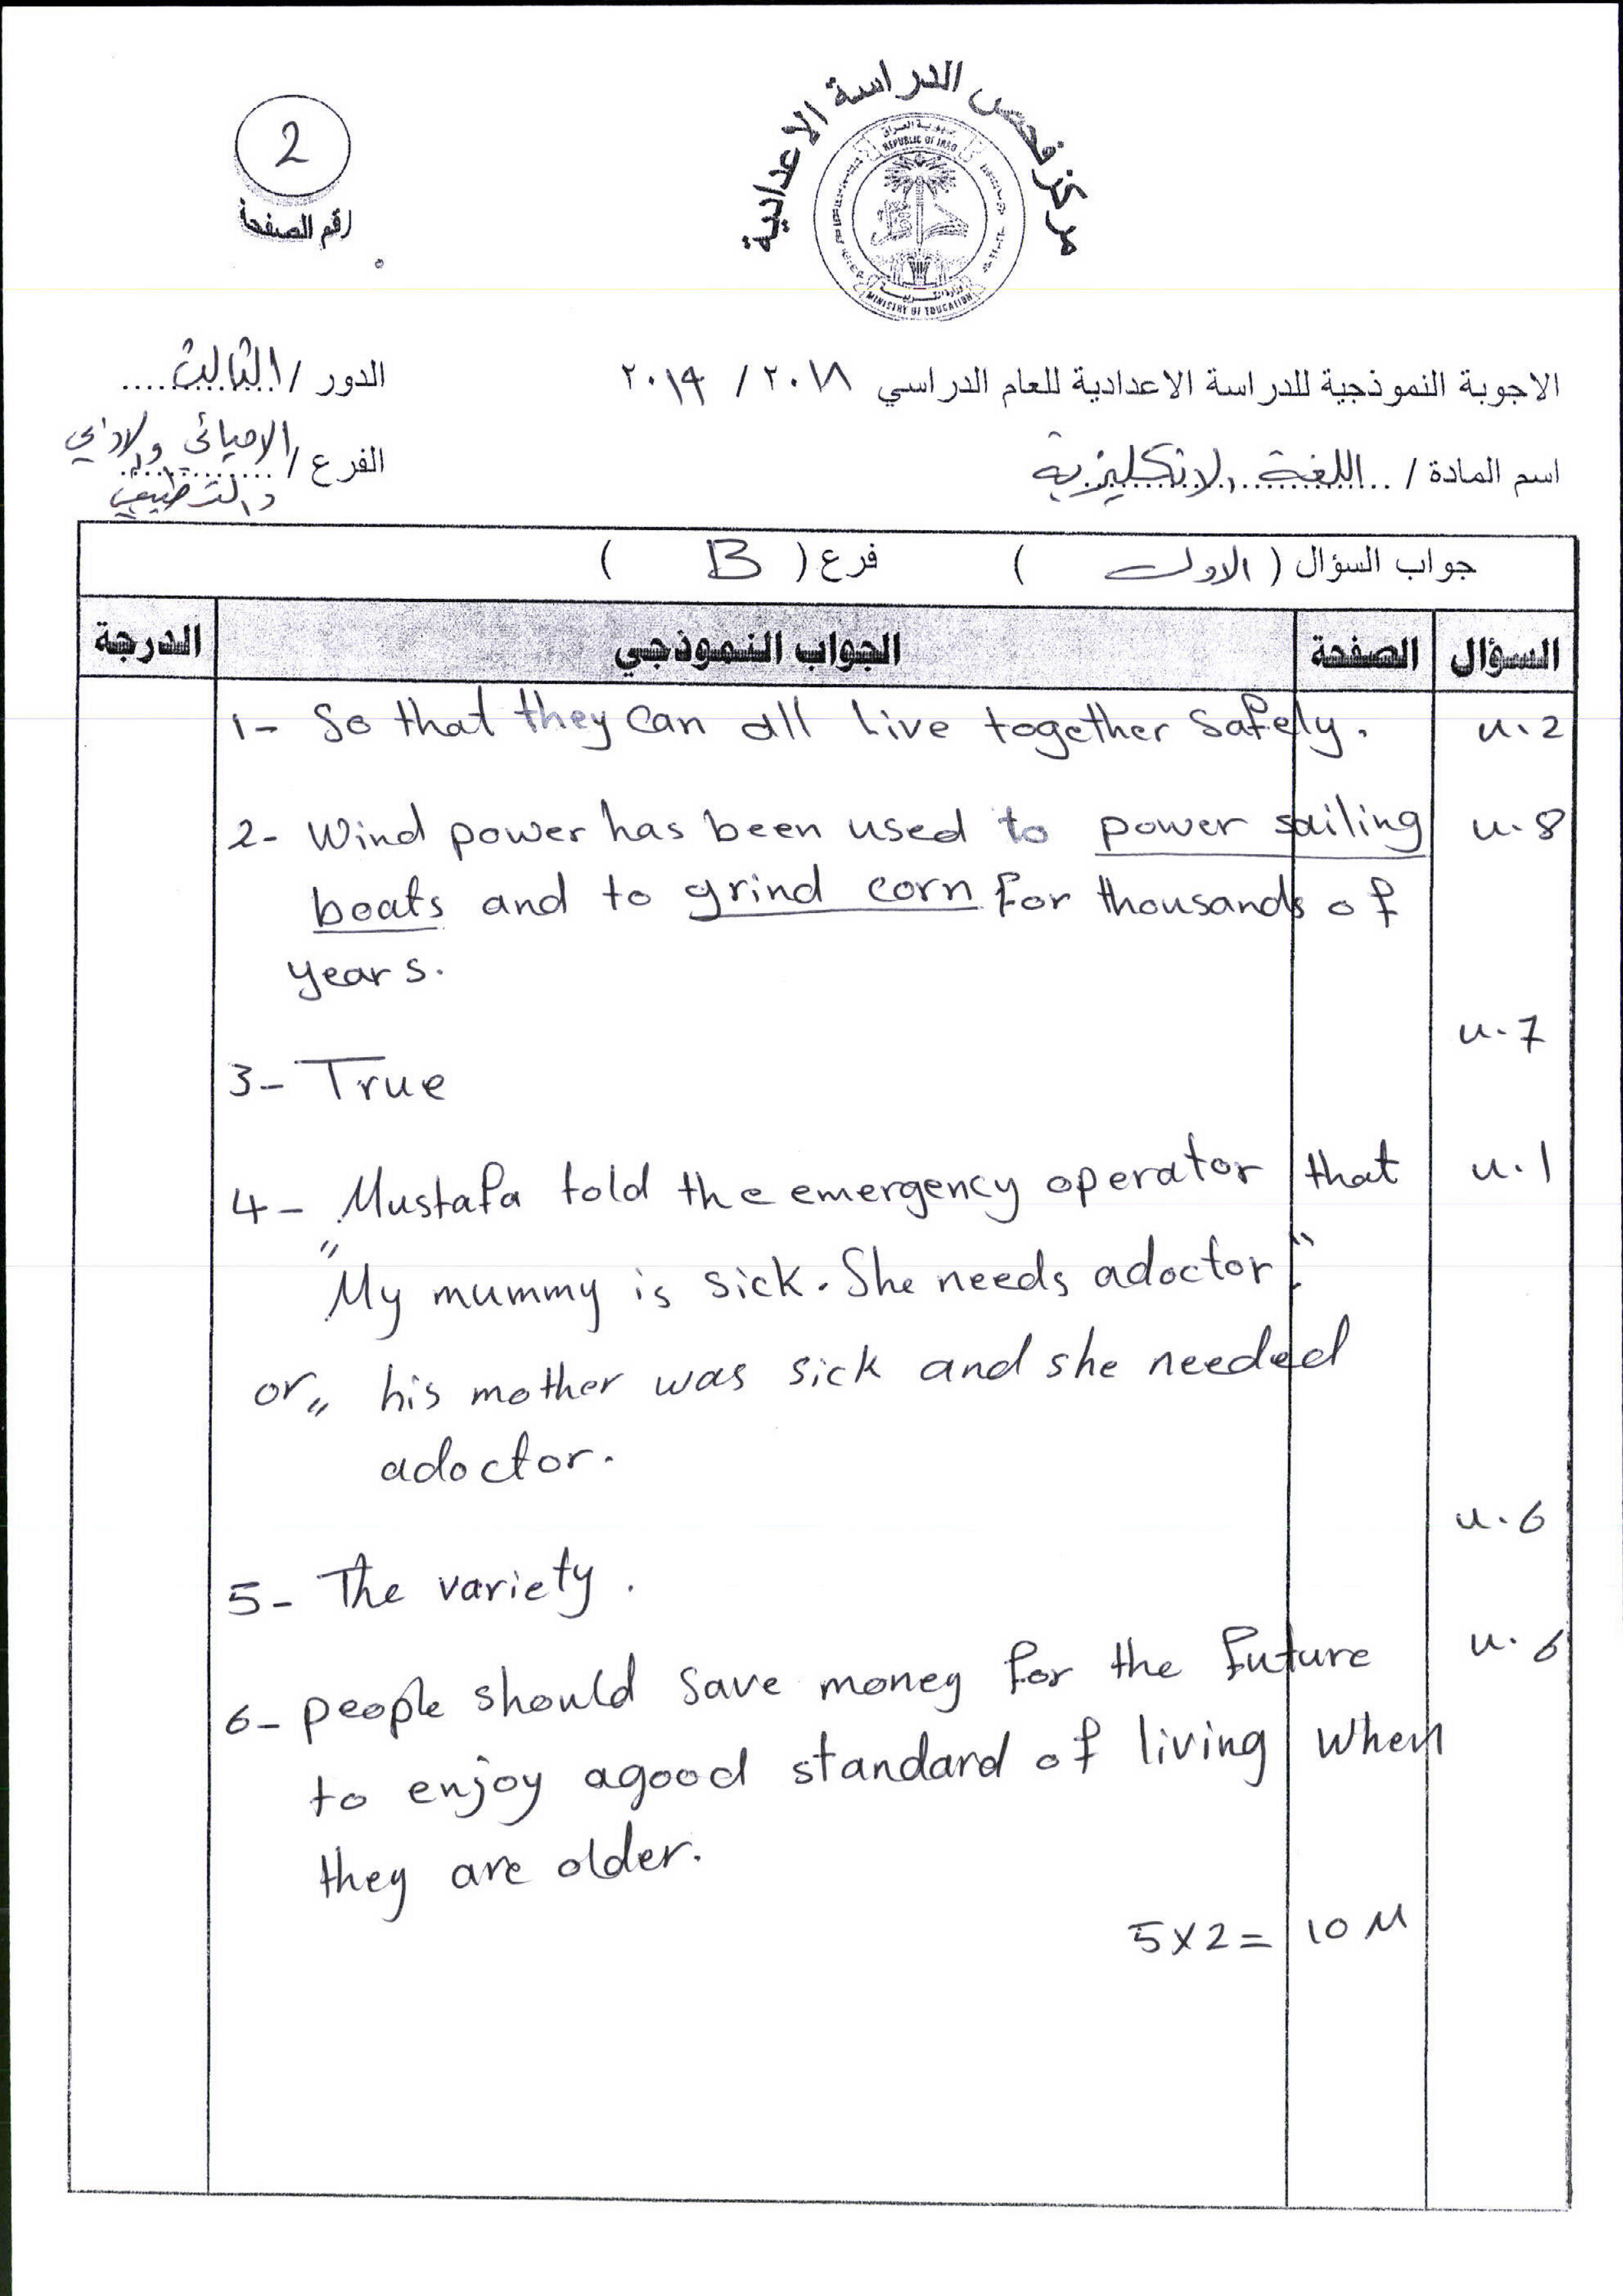 مركز فحص الدراسة الاعدادية
جمهورية العراق
REPUBLIC OF IRAQ
MINISTRY OF EDUCATION
2
رقم الصفحة
الاجوبة النموذجية للدراسة الاعدادية للعام الدراسي ٢٠١٨ / ٢٠١٩
الدور / الثالث
اسم المادة / اللغة الانكليزية
الفرع / الاحيائي والادبي
والتطبيقي
جواب السؤال ( الاول ) فرع ( B )
السؤال الصفحة الجواب النموذجي الدرجة
1- So that they can all live together safely. u.2
2- Wind power has been used to power sailing u.8
boats and to grind corn for thousands of
years.
u.7
3- True
4- Mustafa told the emergency operator that u.1
"My mummy is sick. She needs adoctor."
or,, his mother was sick and she needed
adoctor.
u.6
5- The variety.
6- people should save money for the future u.6
to enjoy agood standard of living when
they are older.
5x2= 10 M